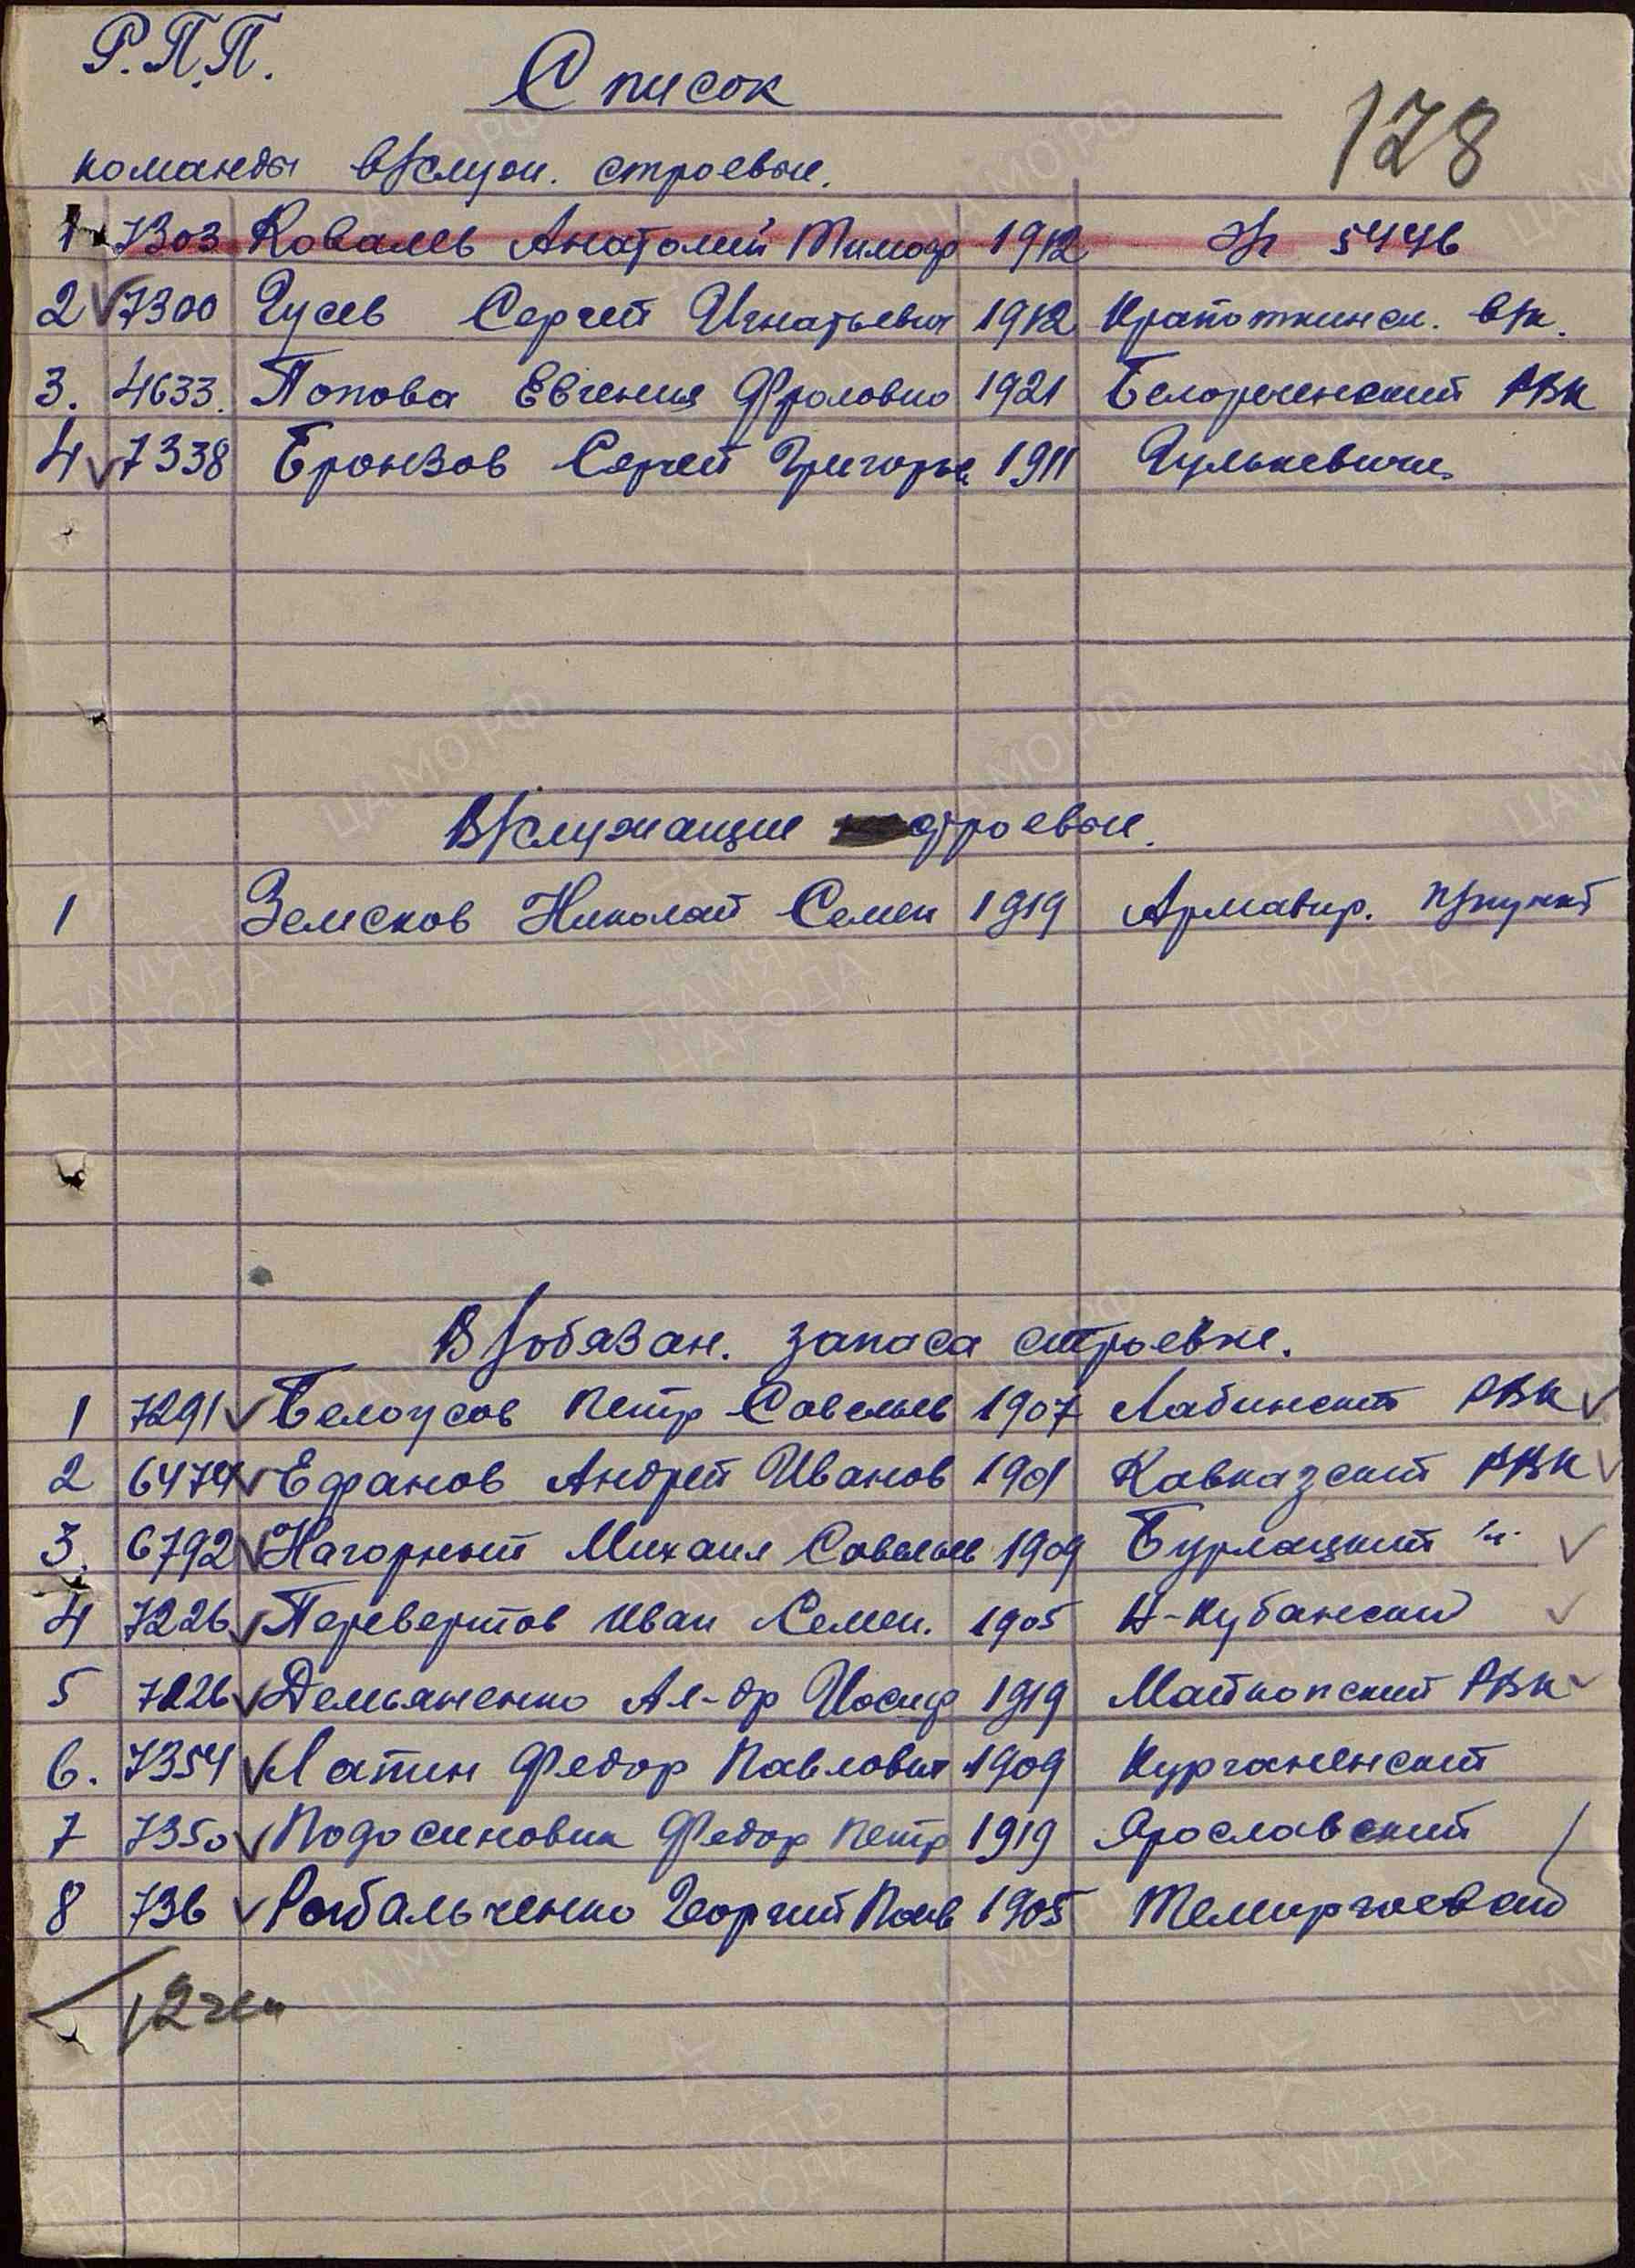 Р.П.П.
Список
128
команды в/служ. строевые.
1 7303 Ковалев Анатолий Тимоф 1912 5446
2 7300 Гусев Сергей Игнатьевич 1912 Крапоткинск. в/к.
3. 4633. Попова Евгения Фроловна 1921 Белореченский РВК
4 7338 Бронзов Сергей Григорье 1911 Гулькевичи
В/служащие строевые.
1 Земсков Николай Семен 1919 Армавир. п/пункт
В/обязан. запаса строевые.
1 7291 Белоусов Петр Савельев 1907 Лабинский РВК
2 Ефанов Андрей Иванов 1901 Кавказский РВК
3. 6792 Нагорный Михаил Савельев 1909 Бурлацкий -"-
4 7226 Перевертов Иван Семен. 1905 Н-Кубанский
5 7226 Демьяненко Ал-др Иосиф 1919 Майкопский РВК
6. 7354 Лапин Федор Павлович 1909 Курганенский
7 7350 Подосиновик Федор Петр 1919 Ярославский
8 736 Рыбальченко Георгий Пав 1905 Темиргоевский
12 чел